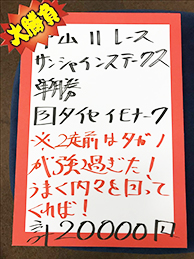 大勝負
山11レース
サンシャインステークス
単勝券
タイセイモナーク
※2走前はタガノ
が強過ぎた!
うまく内々を回って
くれば!
計20000円